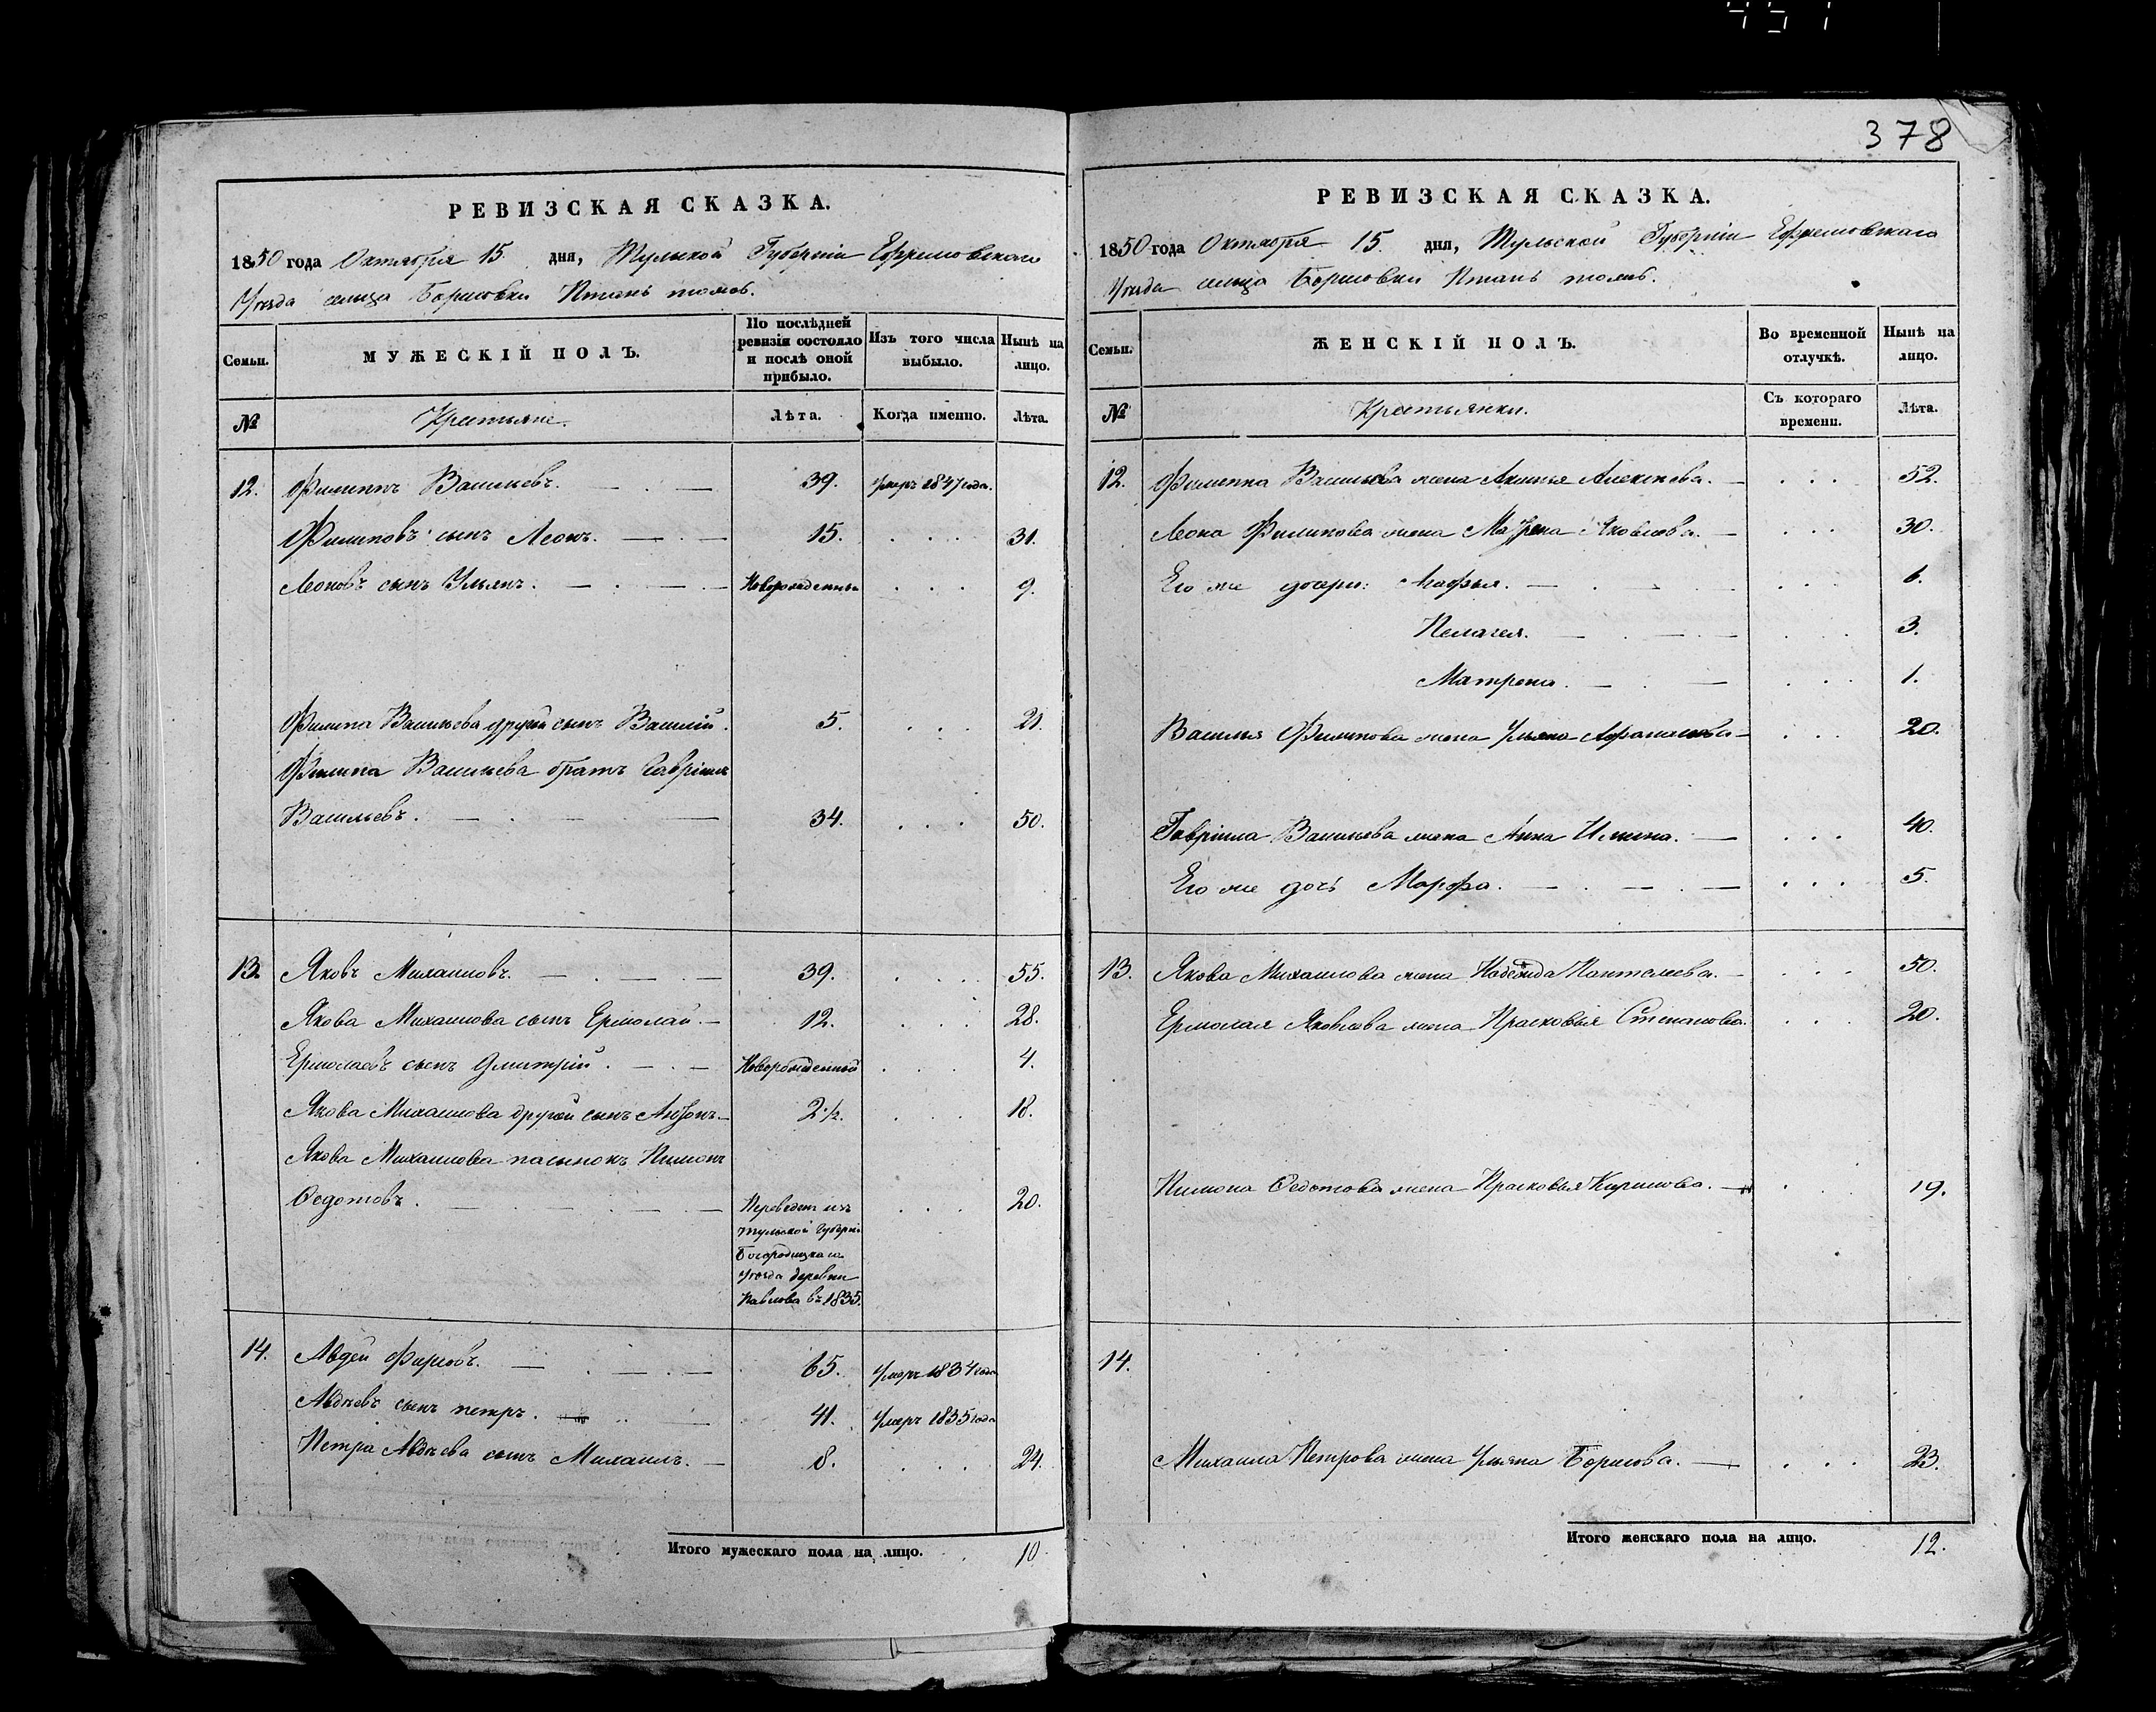 451
378
РЕВИЗСКАЯ СКАЗКА.
1850 года Октября 15 дня, Тульской Губернiи Ефремовскаго
Уѣзда сельца Борисовки Птань тожъ.
Семьи. МУЖЕСКIЙ ПОЛЪ. По послѣдней ревизiи состояло и послѣ оной прибыло. Изъ того числа выбыло. Нынѣ на лицо.
№ Крестьяне. Лѣта. Когда именно. Лѣта.
12. Филиппъ Васильевъ. 39. Умеръ 1847 года.
Филиповъ сынъ Леонъ. 15. 31.
Леоновъ сынъ Ульянъ. Новорожденный 9.
Филипа Васильева другой сынъ Василiй. 5. 21.
Филипа Васильева братъ Гаврiилъ
Васильевъ. 34. 50.
13. Яковъ Михаиловъ. 39. 55.
Якова Михаилова сынъ Ермолай. 12. 28.
Ермолаевъ сынъ Дмитрiй. Новорожденный 4.
Якова Михаилова другой сынъ 2½. 18.
Якова Михаилова пасынокъ Пимонъ
Федотовъ. Переведенъ изъ 20.
тульской Губернiи
Богородицкаго
уѣзда деревни
Павлова въ 1835.
14. Авдей Фирсовъ. 65. Умеръ 1834 года
Авдѣевъ сынъ петръ. 41. Умеръ 1835 года
Петра Авдѣева сынъ Михаилъ. 8. 24.
Итого мужескаго пола на лицо. 10.
РЕВИЗСКАЯ СКАЗКА.
1850 года Октября 15 дня, Тульской Губернiи Ефремовскаго
Уѣзда сельца Борисовки Птань тожъ.
Семьи. ЖЕНСКIЙ ПОЛЪ. Во временной отлучкѣ. Нынѣ на лицо.
№ Крестьянки. Съ котораго времени. Лѣта.
12. Филиппа Васильева жена Аксинья Алексѣева. 52.
Леона Филипова жена Яковлева. 30.
Его же дочери: Агафья. 6.
Пелагея. 3.
Матрена. 1.
Василья Филипова жена Ульяна Афанасьева 20.
Гаврiила Васильева жена Анна Ильина. 40.
Его же дочь Марфа. 5.
13. Якова Михаилова жена Надежда Пантелеева. 50.
Ермолая Яковлева жена Прасковья Степанова. 20.
Пимона Федотова жена Прасковья Кирилова. 19.
14.
Михаила Петрова жена Ульяна Борисова. 23.
Итого женскаго пола на лицо. 12.